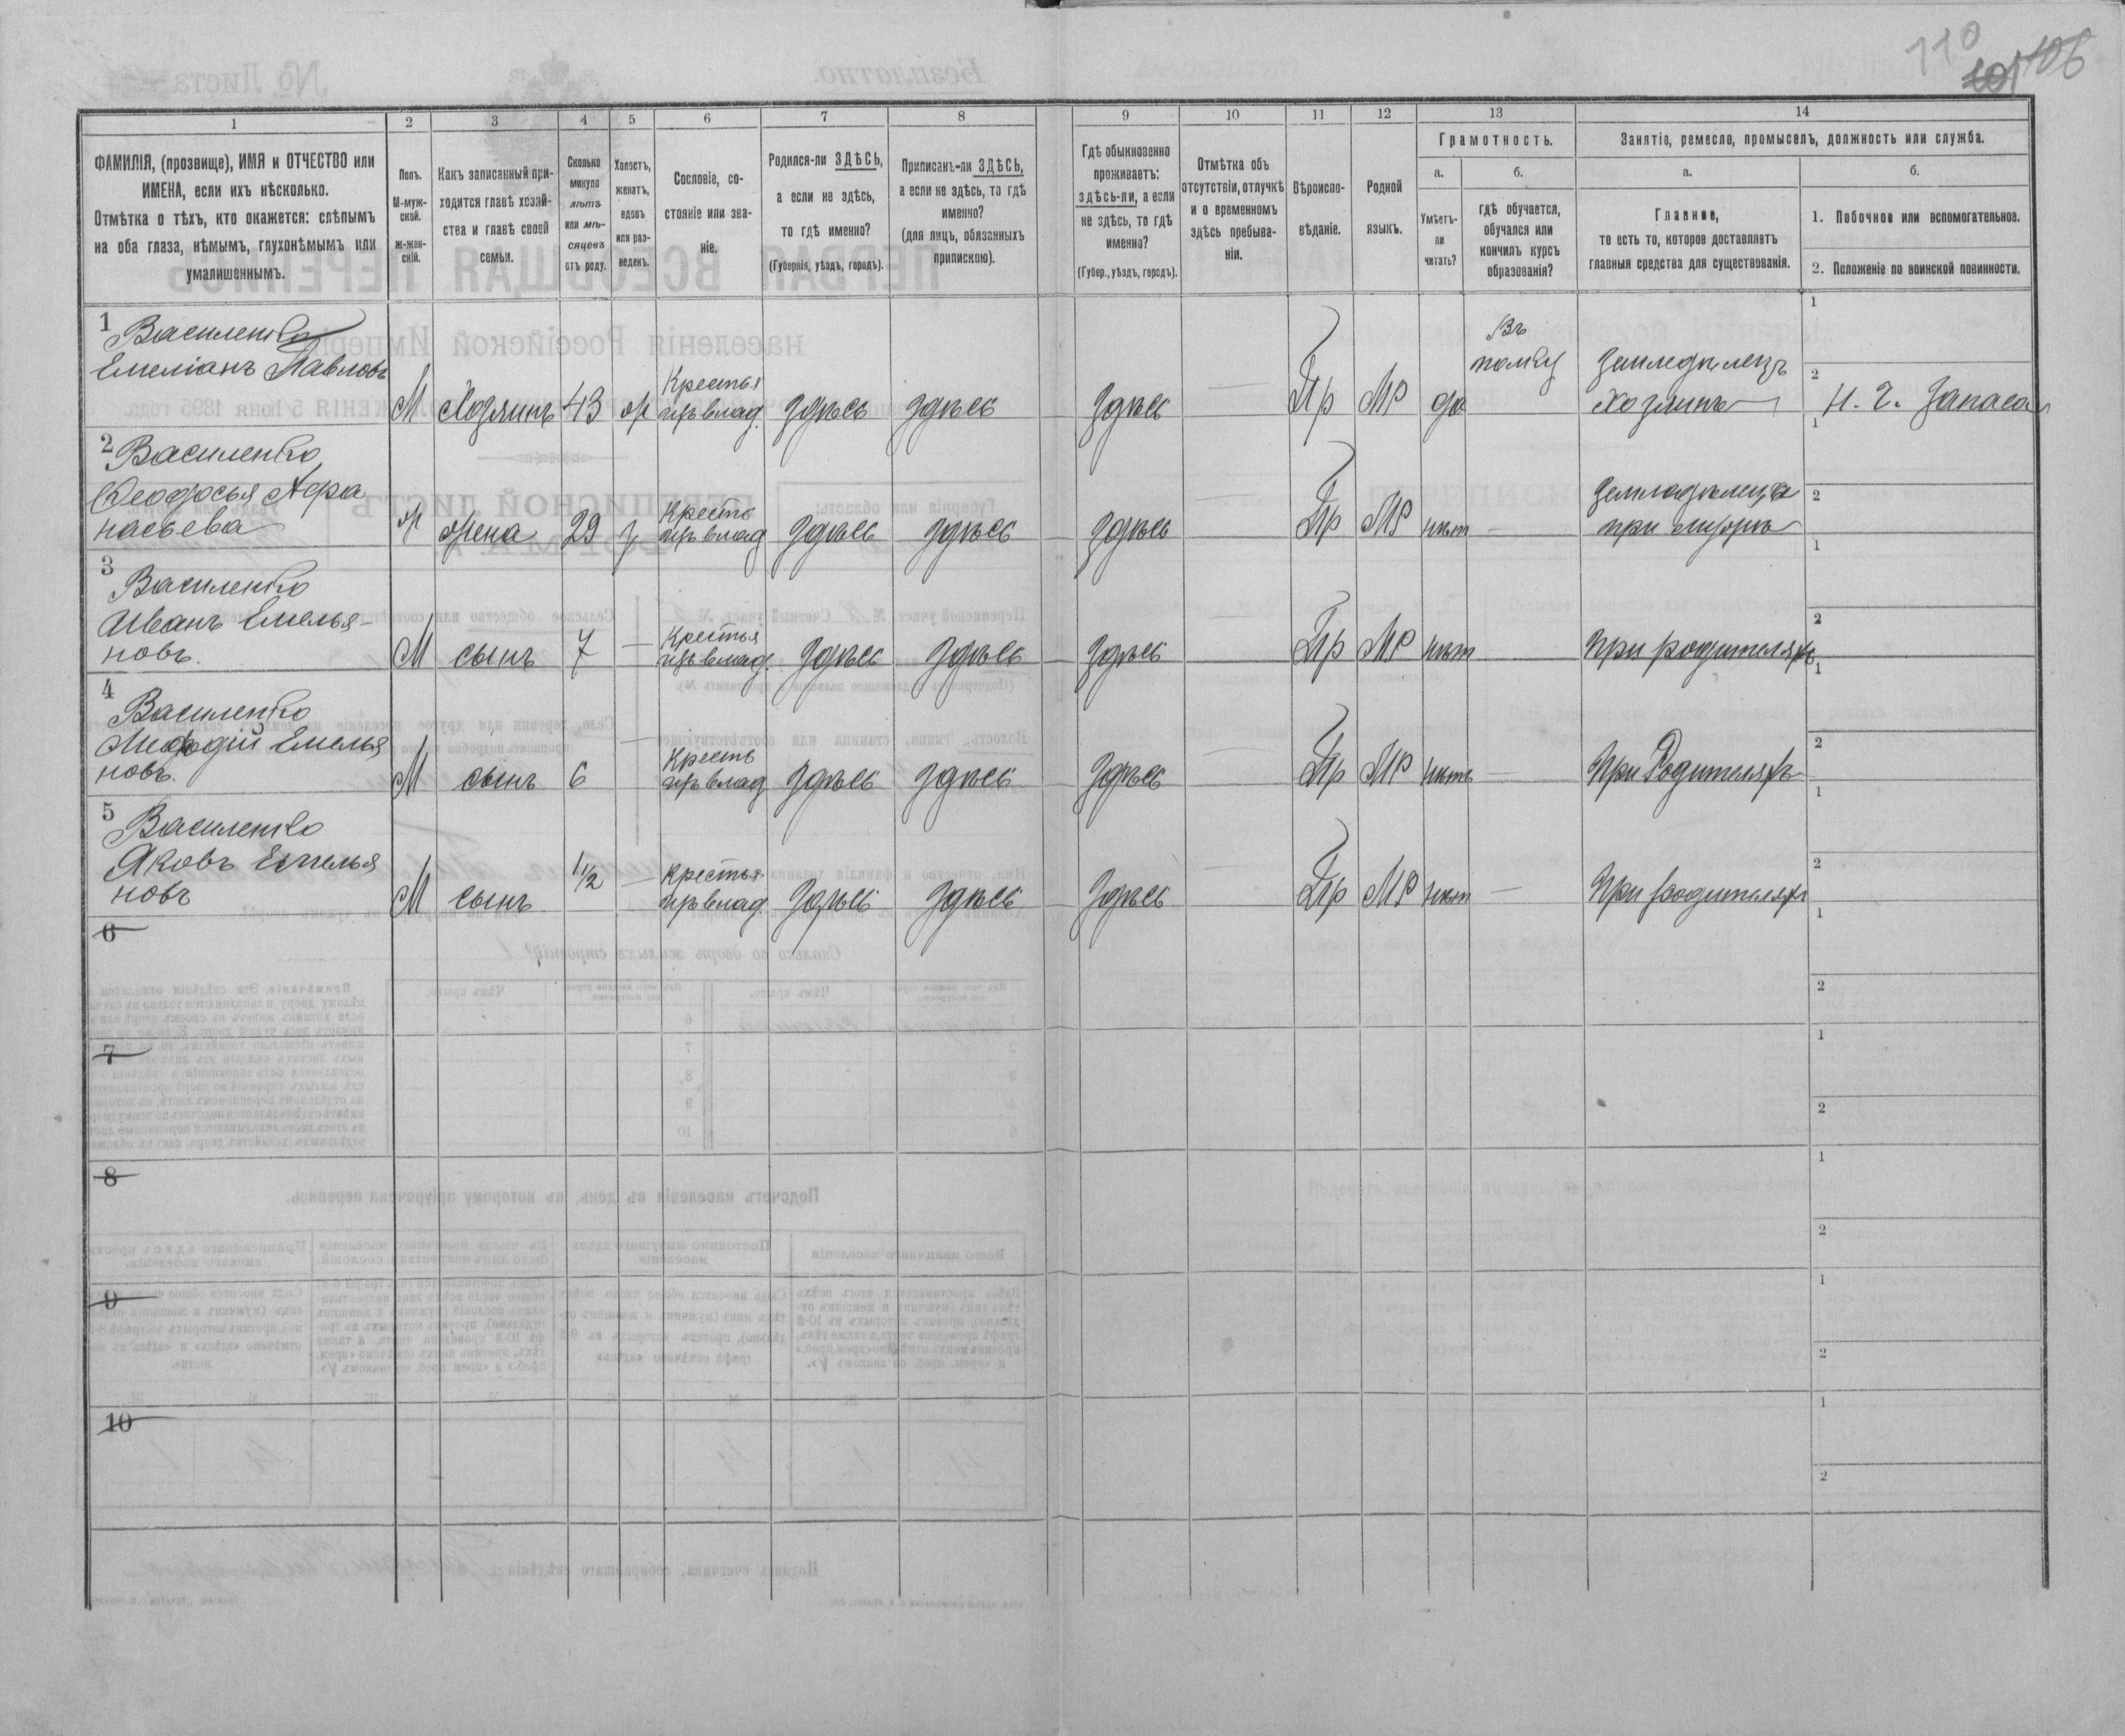 110
101 106
1
2
3
4
5
6
7
8
9
10
11
12
13
14
ФАМИЛІЯ, (прозвище), ИМЯ и ОТЧЕСТВО или
ИМЕНА, если ихъ нѣсколько.
Отмѣтка о тѣхъ, кто окажется: слѣпымъ
на оба глаза, нѣмымъ, глухонѣмымъ или
умалишеннымъ.
Полъ.
М-муж-
ской.
ж-жен-
скій.
Какъ записанный при-
ходится главѣ хозяй-
ства и главѣ своей
семьи.
Сколько
минуло
лѣтъ
или мѣ-
сяцевъ
отъ роду.
Холостъ,
женатъ,
вдовъ
или раз-
веденъ.
Сословіе, со-
стояніе или зва-
ніе.
Родился-ли ЗДѢСЬ,
а если не здѣсь,
то гдѣ именно?
(Губернія, уѣздъ, городъ).
Приписанъ-ли ЗДѢСЬ,
а если не здѣсь, то гдѣ
именно?
(для лицъ, обязанныхъ
припискою).
Гдѣ обыкновенно
проживаетъ:
здѣсь-ли, а если
не здѣсь, то гдѣ
именно?
(Губер., уѣздъ, городъ).
Отмѣтка объ
отсутствіи, отлучкѣ
и о временномъ
здѣсь пребыва-
ніи.
Вѣроиспо-
вѣданіе.
Родной
языкъ.
Грамотность.
а.
Умѣетъ-
ли
читать?
б.
гдѣ обучается,
обучался или
кончилъ курсъ
образованія?
Занятіе, ремесло, промыселъ, должность или служба.
а.
Главное,
то есть то, которое доставляетъ
главныя средства для существованія.
б.
1. Побочное или вспомогательное.
2. Положеніе по воинской повинности.
1 Василенко
Емеліанъ Павловъ
М Хозяинъ 43 ж Крестья
изъ влад. здѣсь здѣсь здѣсь — Пр МР да
Въ
полку
Земледѣлецъ
Хозяинъ
1
2 Н. Ч. Запаса
2 Василенко
Феодосья Афа
насьева
ж жена 29 з Кресть
изъ влад здѣсь здѣсь здѣсь — Пр МР нѣт —
Земледѣлица
при мужѣ
1
2
3 Василенко
Иванъ Емелья-
новъ.
М сынъ 7 — Крестья
изъ влад. здѣсь здѣсь здѣсь — Пр МР нѣт — При родителяхъ
1
2
4 Василенко
Мефодій Емелья
новъ.
М сынъ 6 — Кресть
изъ влад здѣсь здѣсь здѣсь — Пр МР нѣтъ — При Родителяхъ
1
2
5 Василенко
Яковъ Емелья
новъ
М сынъ 1 1/2 — Крестья
изъ влад. здѣсь здѣсь здѣсь — Пр МР нѣт — При родителях
1
2
6
1
2
7
1
2
8
1
2
9
1
2
10
1
2